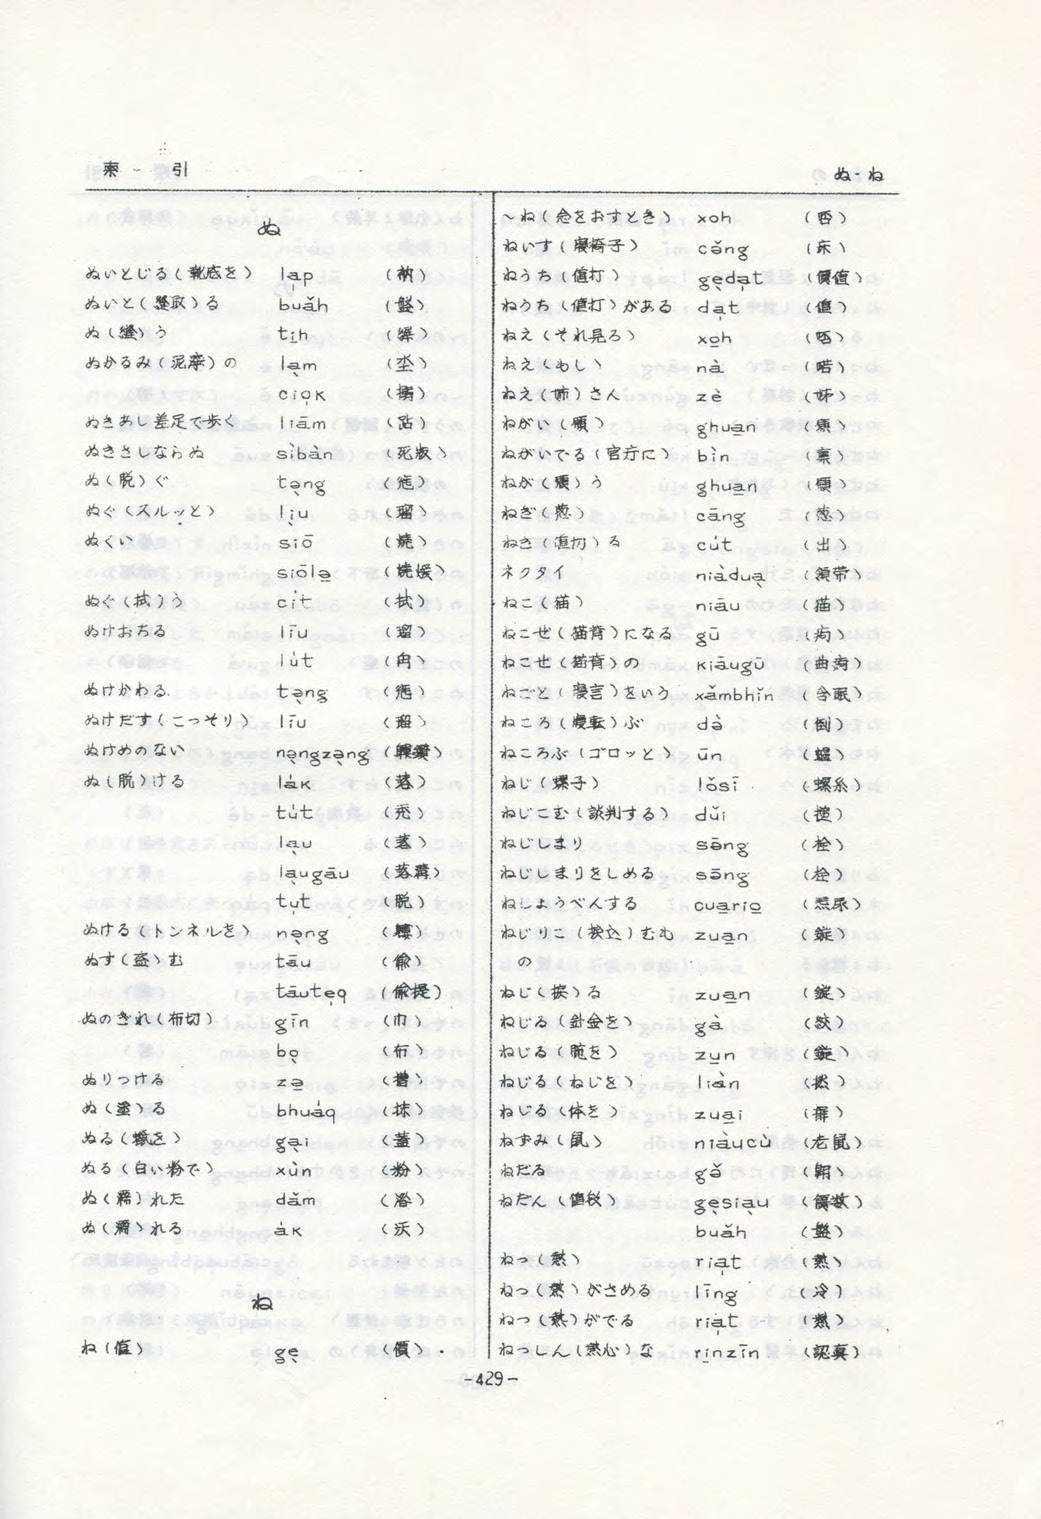 索引
ぬ・ね
ぬ
ぬいとじる(靴底を) la̱p (衲)
ぬいと(縫取)る buǎh
ぬ(縫)う ti̱h
ぬかるみ(泥濘)の la̱m
cio̱k
ぬきあし差足で歩く liām
ぬきさしならぬ sìbàn (死板)
ぬ(脱)ぐ tə̱ng
ぬぐ(スルッと) li̱u (瑠)
ぬぐい siō (燒)
siōlə̱
ぬぐ(拭)う cít (拭)
ぬけおちる līu (瑠)
lút
ぬけかわる tə̱ng
ぬけだす(こっそり) līu
ぬけめのない nə̱ngzə̱ng
ぬ(脱)ける lák (落)
tút (禿)
la̱u (落)
la̱ugāu
tu̱t (脱)
ぬける(トンネルを) nə̱ng
ぬす(盗)む tāu (偸)
tāute̱q (偸提)
ぬのぎれ(布切) gīn (巾)
bo̱ (布)
ぬりつける zə̱
ぬ(塗)る bhuáq (抹)
ぬる(蝋を) ga̱i (蓋)
ぬる(白い粉で) xùn (粉)
ぬ(濡)れた dǎm
ぬ(濡)れる ák (沃)
ね
ね(値) ge̱ (價)
〜ね(念をおすとき) xoh
ねいす(寝椅子) cǒng (床)
ねうち(値打) ge̱da̱t (價值)
ねうち(値打)がある da̱t (值)
ねえ(それ見ろ) xo̱h
ねえ(もし) nà
ねえ(姉)さん zè (姉)
ねがい(願) ghua̱n (願)
ねがいでる(官庁に) bìn (稟)
ねが(願)う ghua̱n (願)
ねぎ(葱) cāng (葱)
ねぎ(値切)る cút (出)
ネクタイ niàduə̱ (領帯)
ねこ(猫) niāu (猫)
ねこせ(猫背)になる gū (痀)
ねこせ(猫背)の kiāugū (曲痀)
ねごと(寝言)をいう xǎmbhǐn (含眠)
ねころ(寝転)ぶ dò (倒)
ねころぶ(ゴロッと) ūn
ねじ(螺子) lǒsī (螺糸)
ねじこむ(談判する) dǔi (搥)
ねじしまり sōng (栓)
ねじしまりをしめる sōng (栓)
ねしょうべんする cua̱rio̱
ねじりこ(捩込)むむの zua̱n
ねじ(捩)る zua̱n
ねじる(針金を) gà (絞)
ねじる(腕を) zu̱n
ねじる(ねじを) liàn (撚)
ねじる(体を) zua̱i
ねずみ(鼠) niàucù (老鼠)
ねだる gǒ
ねだん(値段) ge̱sia̱u (價数)
buǎh
ねつ(熱) ria̱t (熱)
ねつ(熱)がさめる līng (冷)
ねつ(熱)がでる ria̱t (熱)
ねっしん(熱心)な ri̱nzīn (認真)
-429-